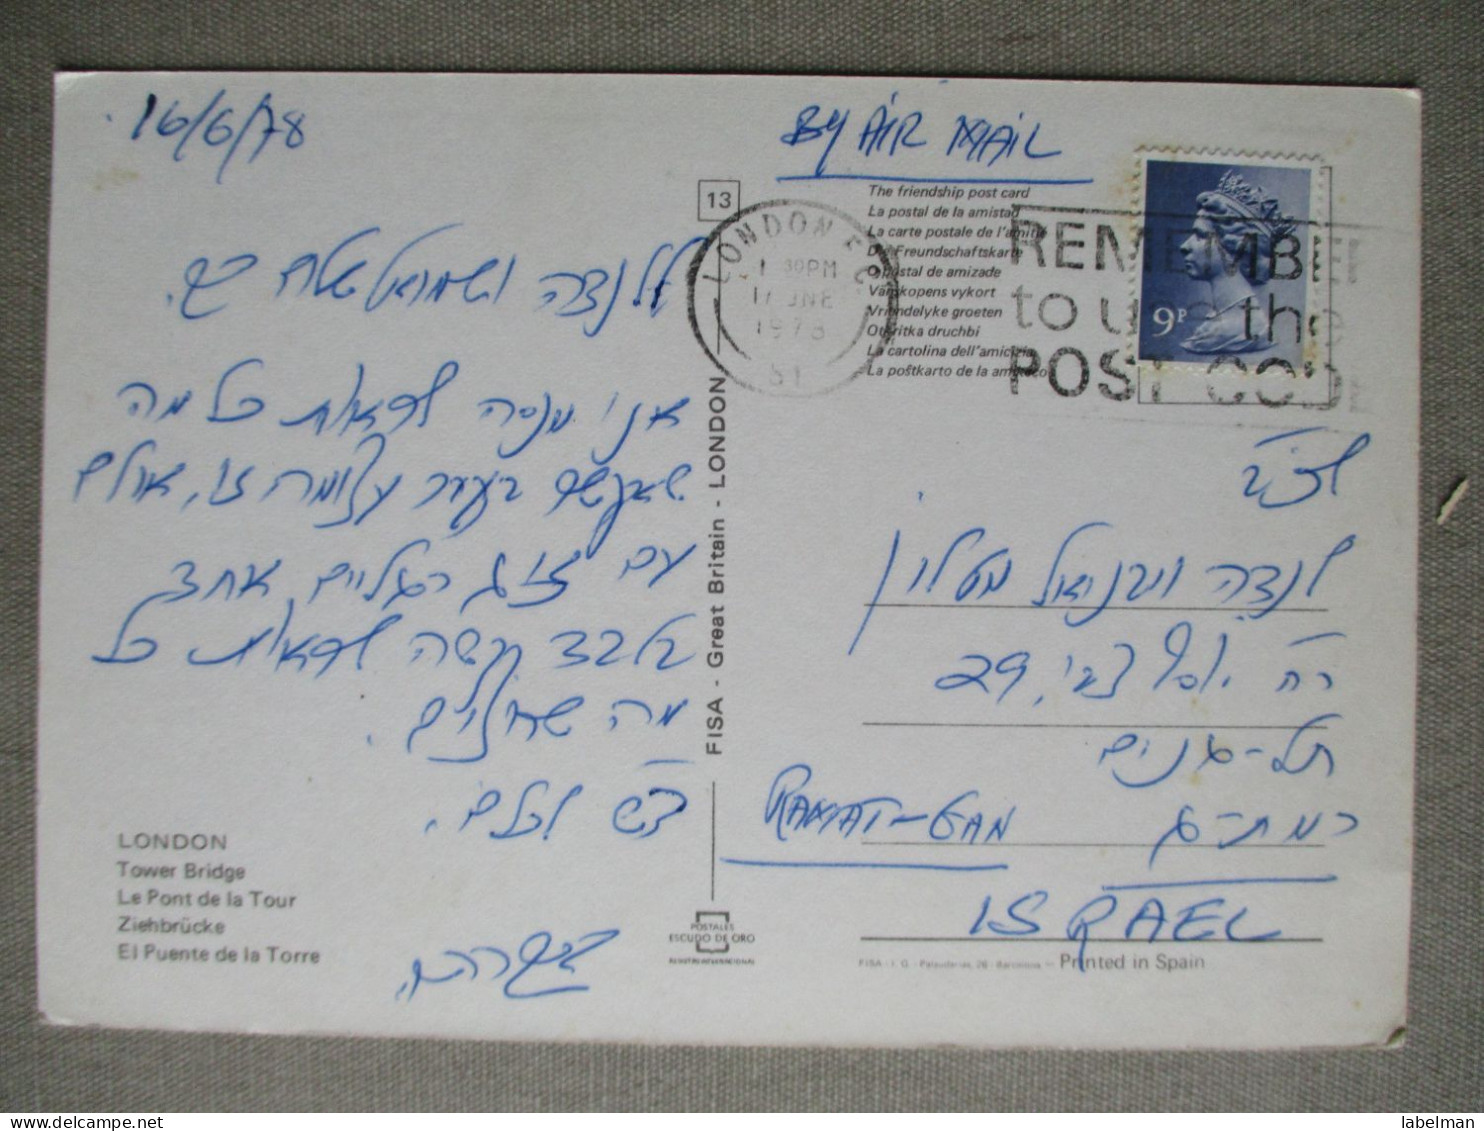 16/6/78
שלום רב.
אני מנסה לראות כל מה
בעיר עצומה זו, אולם
עם זוג רגליים אחד
בלבד קשה לראות כל
מה שרוצים.
ד"ש לכולם.
LONDON
Tower Bridge
Le Pont de la Tour
Ziehbrücke
El Puente de la Torre
13
FISA - Great Britain - LONDON
POSTALES
ESCUDO DE ORO
BY AIR MAIL
The friendship post card
La postal de la amistad
La carte postale de l'amitié
Die Freundschaftskarte
O postal de amizade
Vänskopens vykort
Vriendelyke groeten
Otkritka druchbi
La cartolina dell'amicizia
La poŝtkarto de la amikeco
LONDON EC
1 30PM
17 JNE
1978
REMEMBER
to use the
POST CODE
9P
29
תל-גנים
RAMAT-GAN
רמת-גן
ISRAEL
FISA - I. G. - Palaudarias, 26 - Barcelona - Printed in Spain
labelman